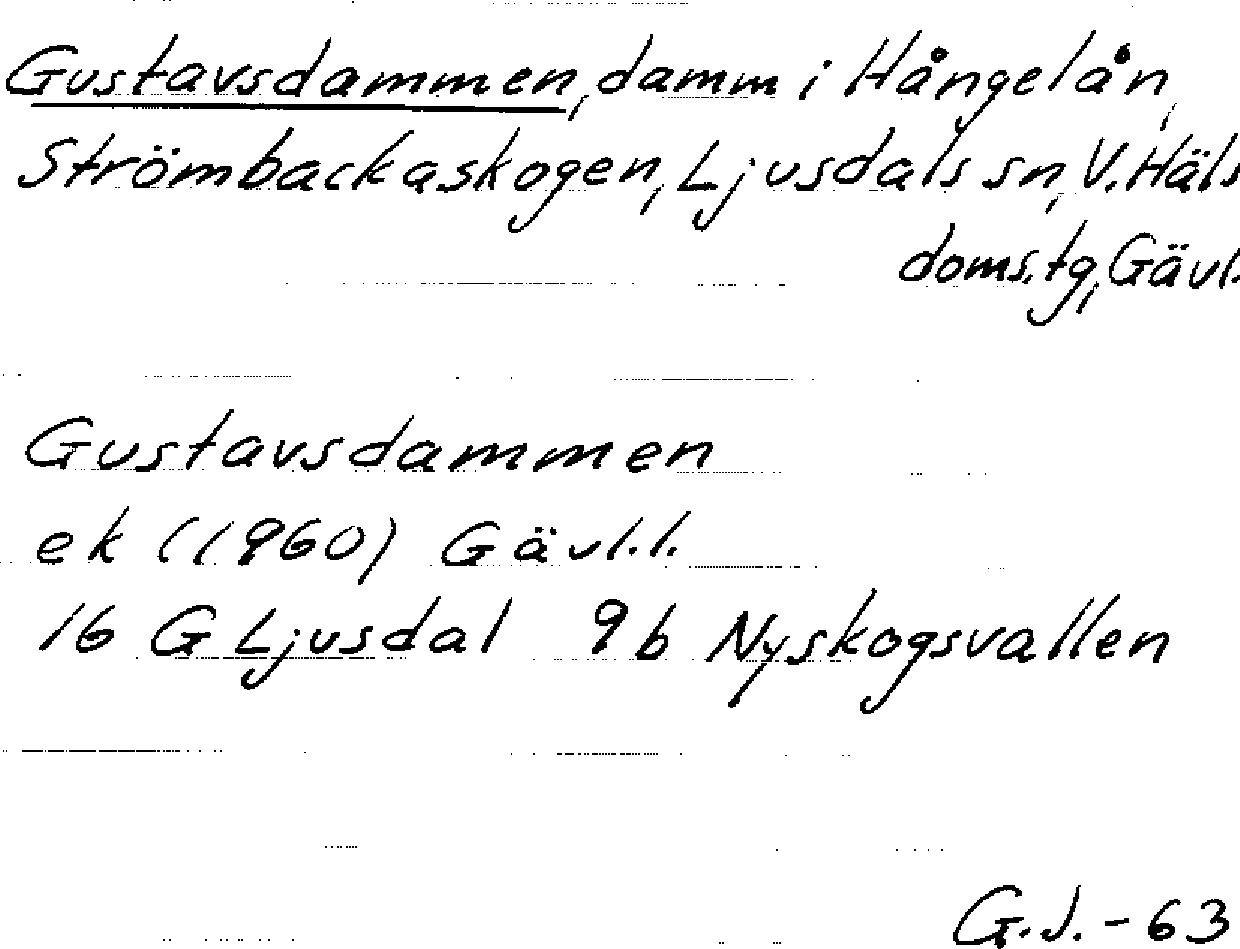 Gustavsdammen, damm i Hångelån,
Strömbackaskogen, Ljusdals sn, V. Häls
doms.tg, Gävl.
Gustavsdammen
ek (1960) Gävl.l.
16 G Ljusdal 9b Nyskogsvallen
G.J. - 63